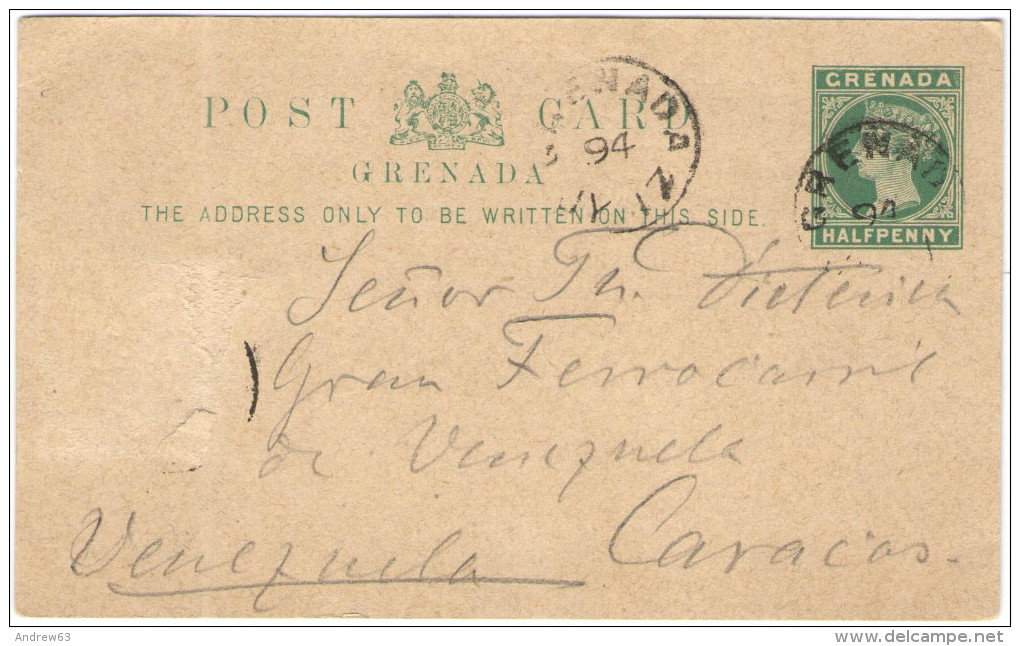 POST CARD
GRENADA
THE ADDRESS ONLY TO BE WRITTEN ON THIS SIDE.
GRENADA
HALFPENNY
GRENADA
94
GRENAD
94
Señor Th.
Gran Ferrocarril
de Venezuela
Caracas.
Venezuela
Andrew63
www.delcampe.net